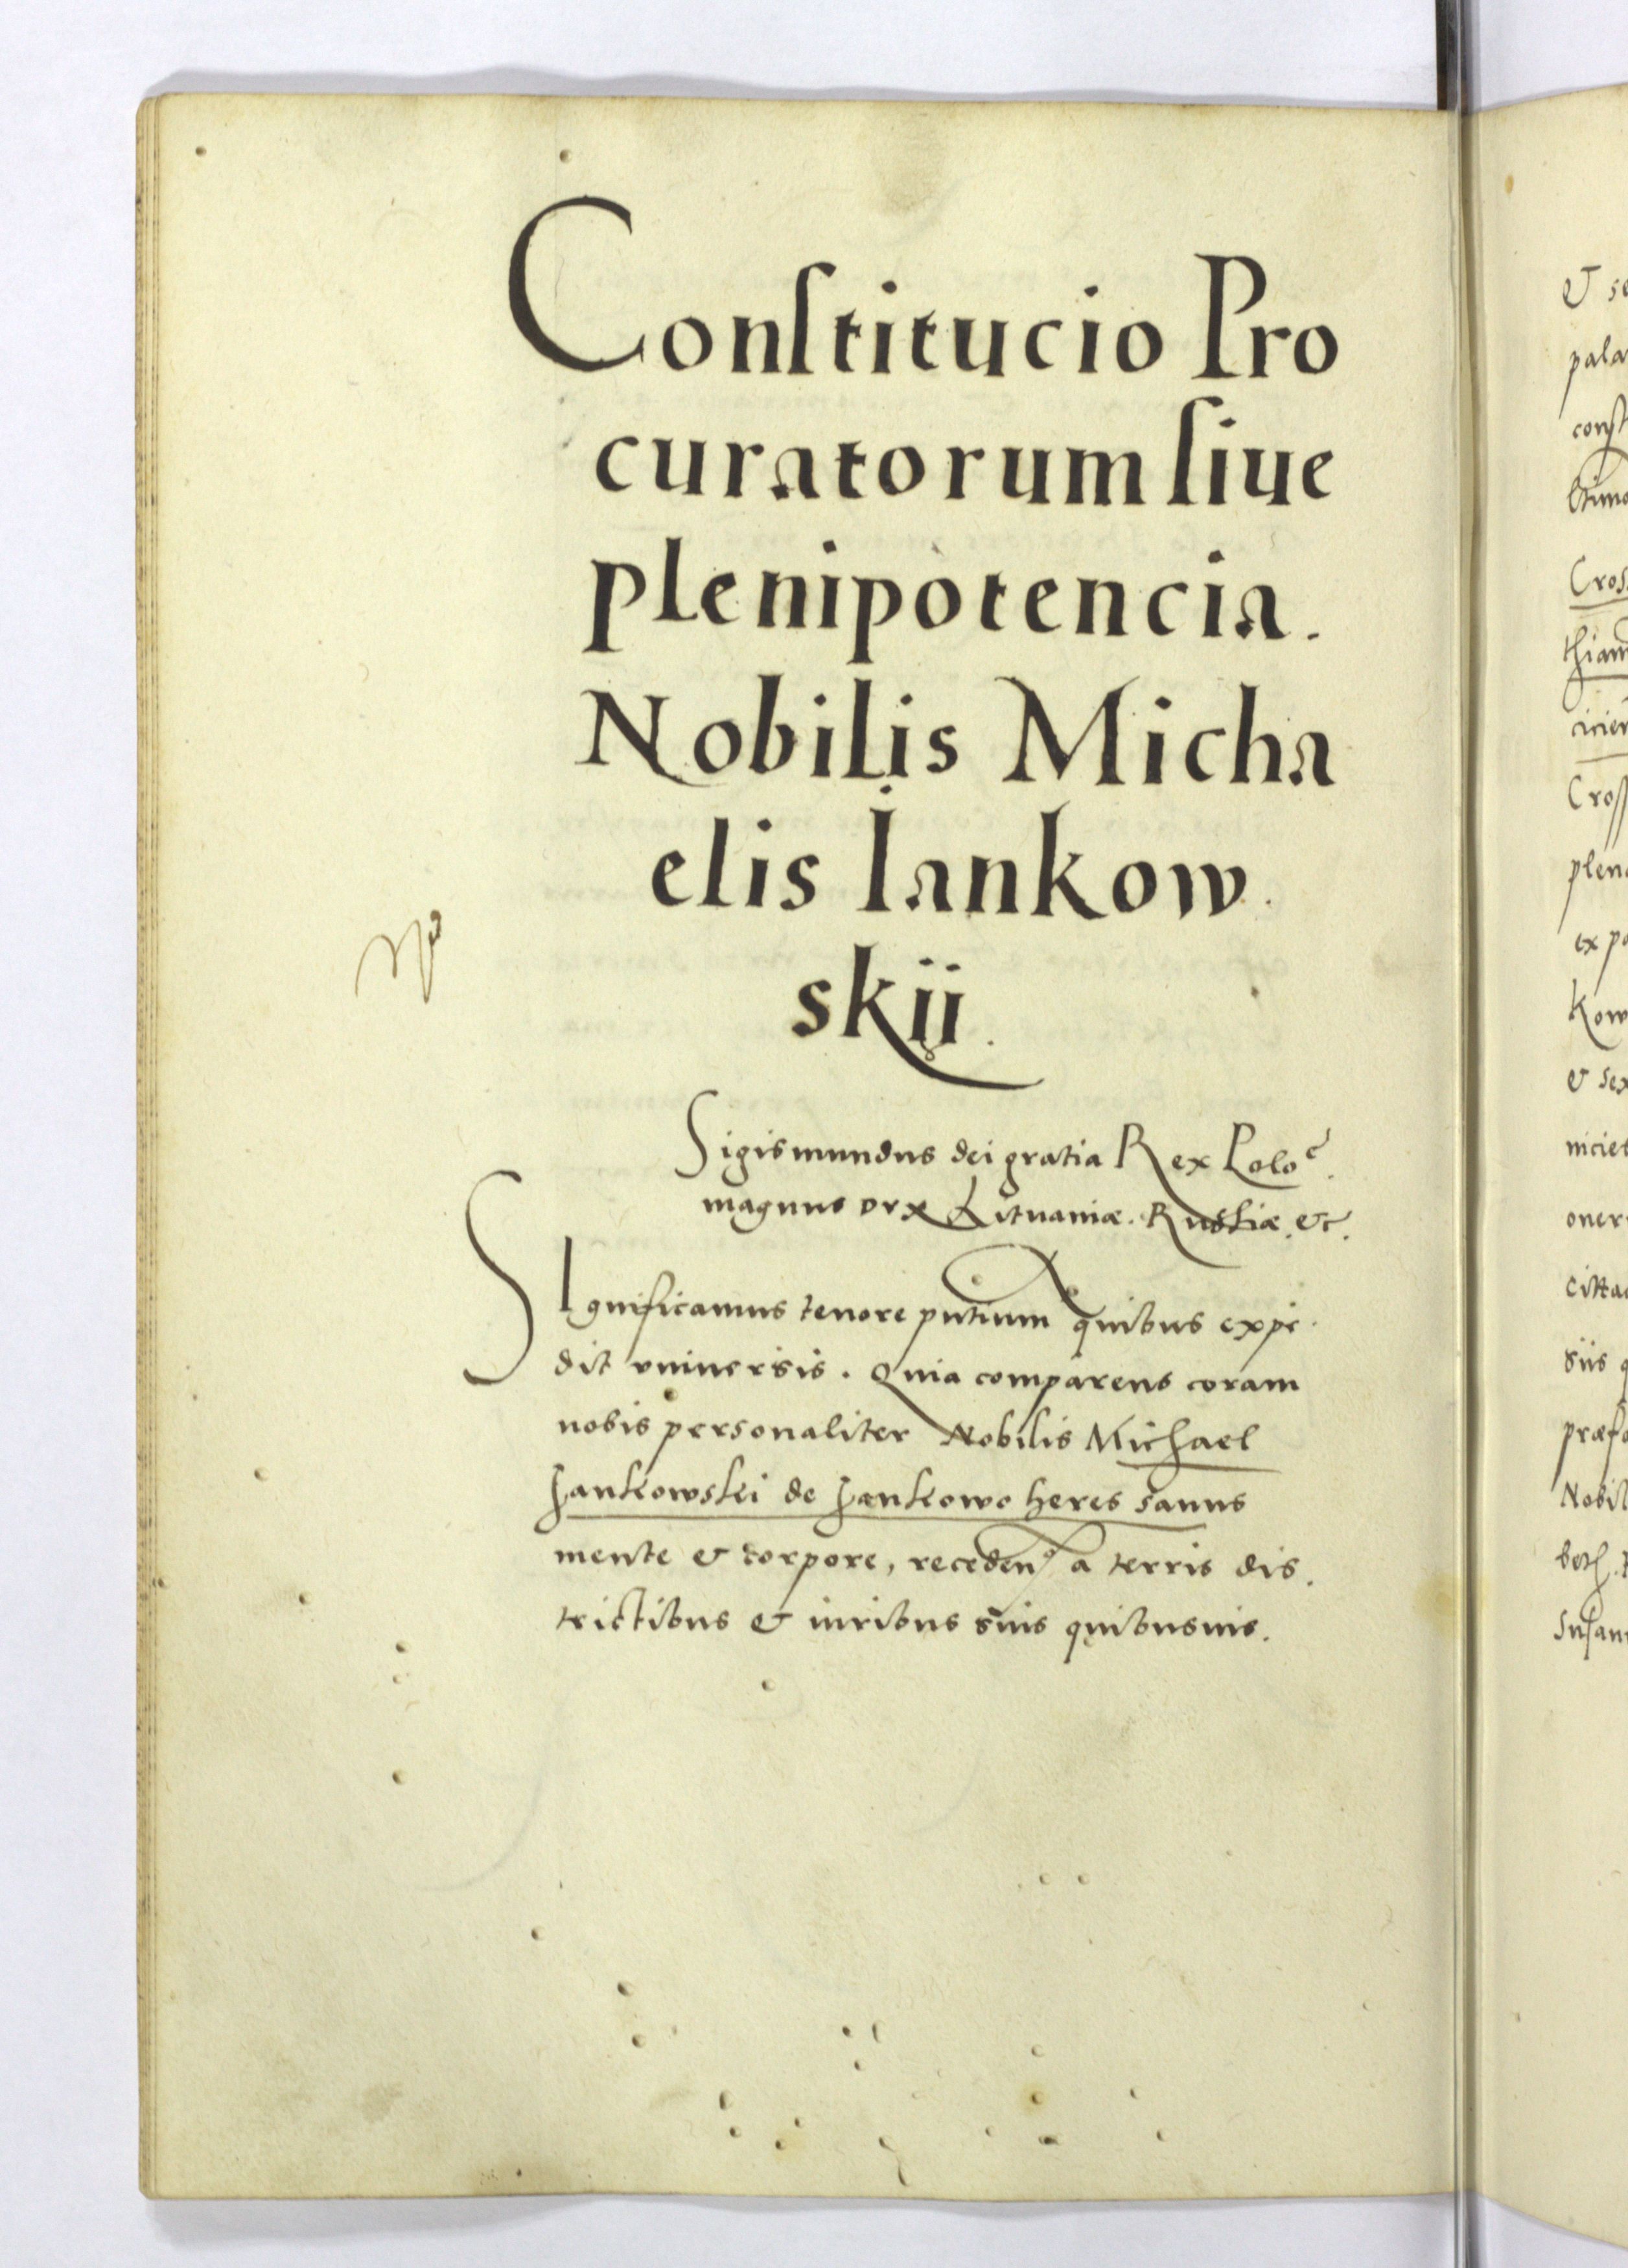 Conſtitucio Pro
curatorum ſiue
plenipotencia.
Nobilis Micha
elis Iankow.
skii.
Sigismundus dei gratia Rex Poloᵉ.
magnus Dux Lituaniæ. Russiæ. etc.
SIgnificamus tenore pntium quibus expe.
dit vniuersis. Quia comparens coram
nobis personaliter Nobilis Michael
Jankowski de Jankowo heres sanus
mente & corpore, receden a terris dis.
trictibus & iuribus suis quibusuis.
& se
pala
const
Cros
thiam
icien
Cross
plen
ex pa
kow
& sex
niciet
oner
citta
siis q
præfa
Nobil
beth.
Susan